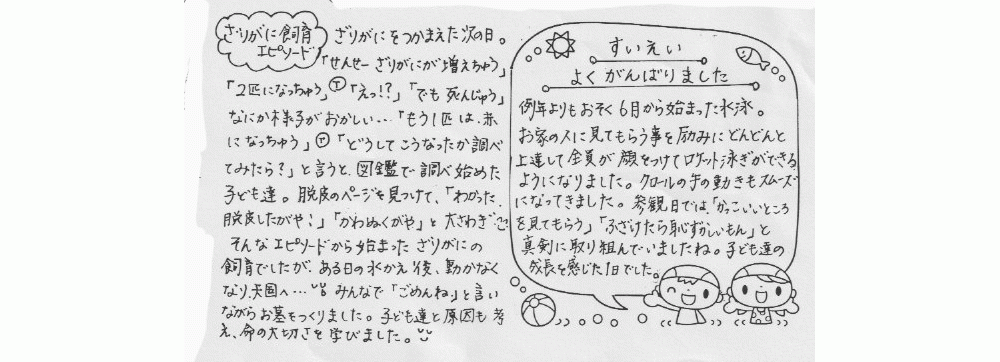 ざりがに飼育
エピソード
ざりがにをつかまえた次の日。
「せんせー ざりがにが増えちゅう」
「2匹になっちゅう」Ⓣ「えっ!?」「でも 死んじゅう」
なにか様子がおかしい…「もう1匹は、赤
になっちゅう」Ⓣ「どうしてこうなったか調べ
てみたら?」と言うと、図鑑で調べ始めた
子ども達。脱皮のページを見つけて、「わかった、
脱皮したがや!」「かわぬくがや」と大さわぎ
そんなエピソードから始まった ざりがにの
飼育でしたが、ある日の水かえ後、動かなく
なり、天国へ… みんなで「ごめんね」と言い
ながらお墓をつくりました。子ども達と原因も考
え、命の大切さを学びました。
すいえい
よくがんばりました
例年よりもおそく6月から始まった水泳。
お家の人に見てもらう事を励みにどんどんと
上達して全員が顔をつけてロケット泳ぎができる
ようになりました。クロールの手の動きもスムーズ
になってきました。参観日では、「かっこいいところ
を見てもらう」「ふざけたら恥ずかしいもん」と
真剣に取り組んでいましたね。子ども達の
成長を感じた1日でした。